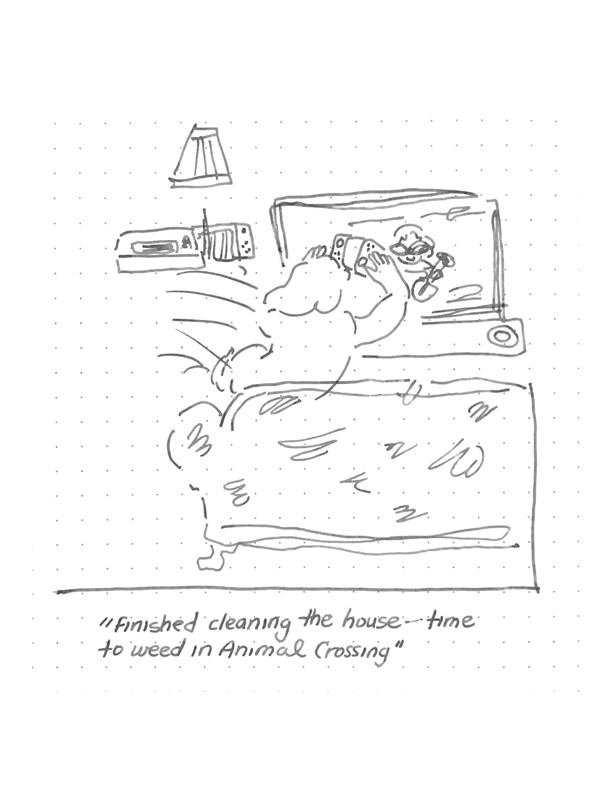 "Finished cleaning the house—time
to weed in Animal Crossing"